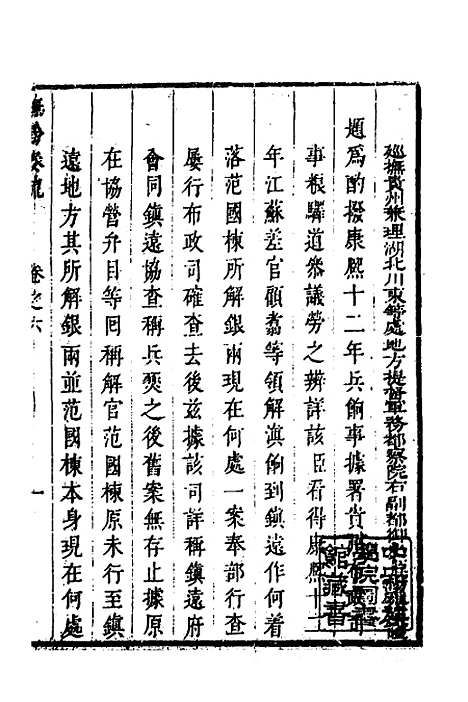 巡撫貴州兼理湖北川東等處地方提督軍務都察院右副都御
題爲酌撥康熙十二年兵餉事據署貴州布政
事粮驛道叅議勞之辨詳該臣看得康熙十二
年江蘇差官顧翥等領解滇餉到鎮遠作何着
落范國棟所解銀兩現在何處一案奉部行查
屡行布政司確查去後兹據該司詳稱鎮遠府
會同鎮遠協查稱兵燹之後舊案無存止據原
在協營弁目等囘稱解官范國棟原未行至鎮
遠地方其所解銀兩並范國棟本身現在何處
撫黔奏疏 卷之六 一
館藏書